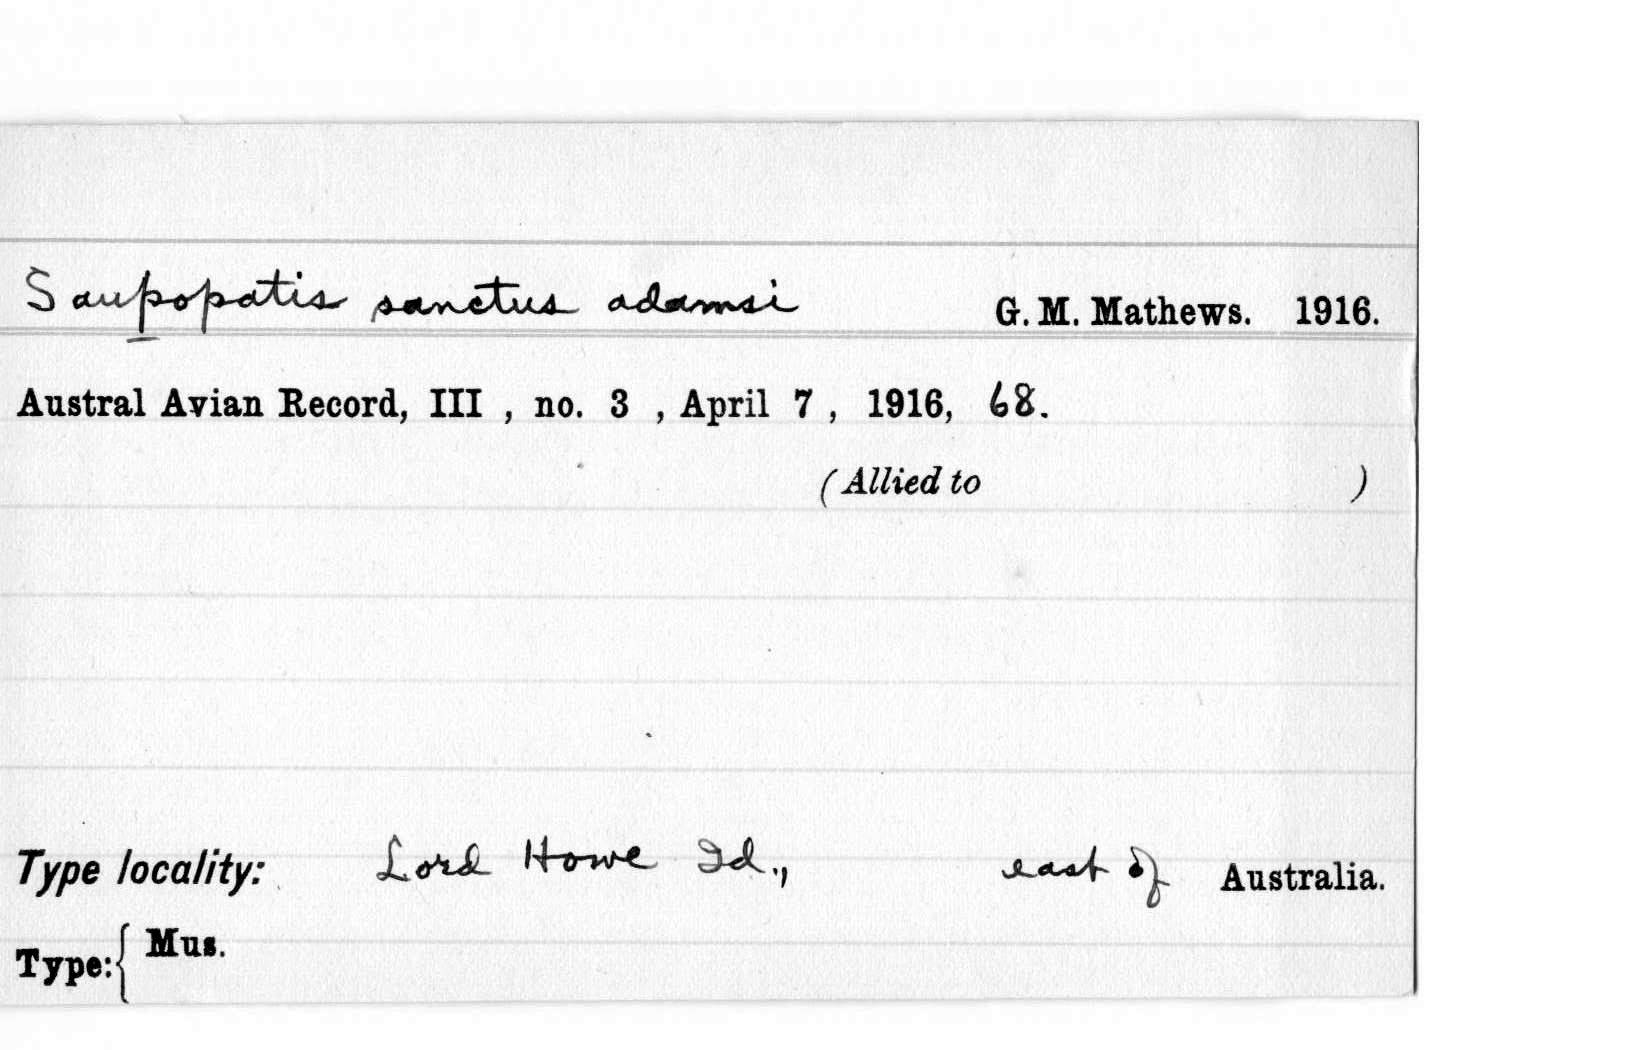 Saupopatis sanctus adamsi G. M. Mathews. 1916.
Austral Avian Record, III , no. 3 , April 7 , 1916, 68.
(Allied to )
Type locality: Lord Howe Id., east of Australia.
Type: { Mus.